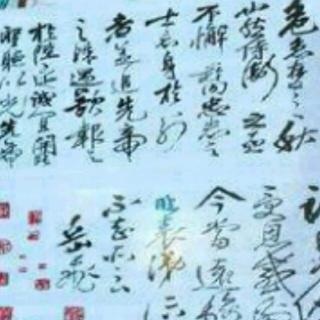 危急存亡之秋
也然侍衛之臣
不懈於內忠志之
士忘身於外
者蓋追先帝
之殊遇欲報之
於陛下誠宜開
聖聽以光先帝
受恩感激
今當遠離
臨表涕泣
不知所云
岳飛